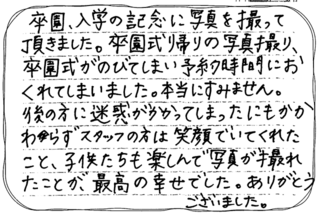 卒園、入学の記念に写真を撮って
頂きました。卒園式帰りの写真撮り、
卒園式がのびてしまい予約時間にお
くれてしまいました。本当にすみません。
後の方に迷惑がかかってしまったにもかか
わらずスタッフの方は笑顔でいてくれた
こと、子供たちも楽しんで写真が撮れ
たことが、最高の幸せでした。ありがとう
ございました。